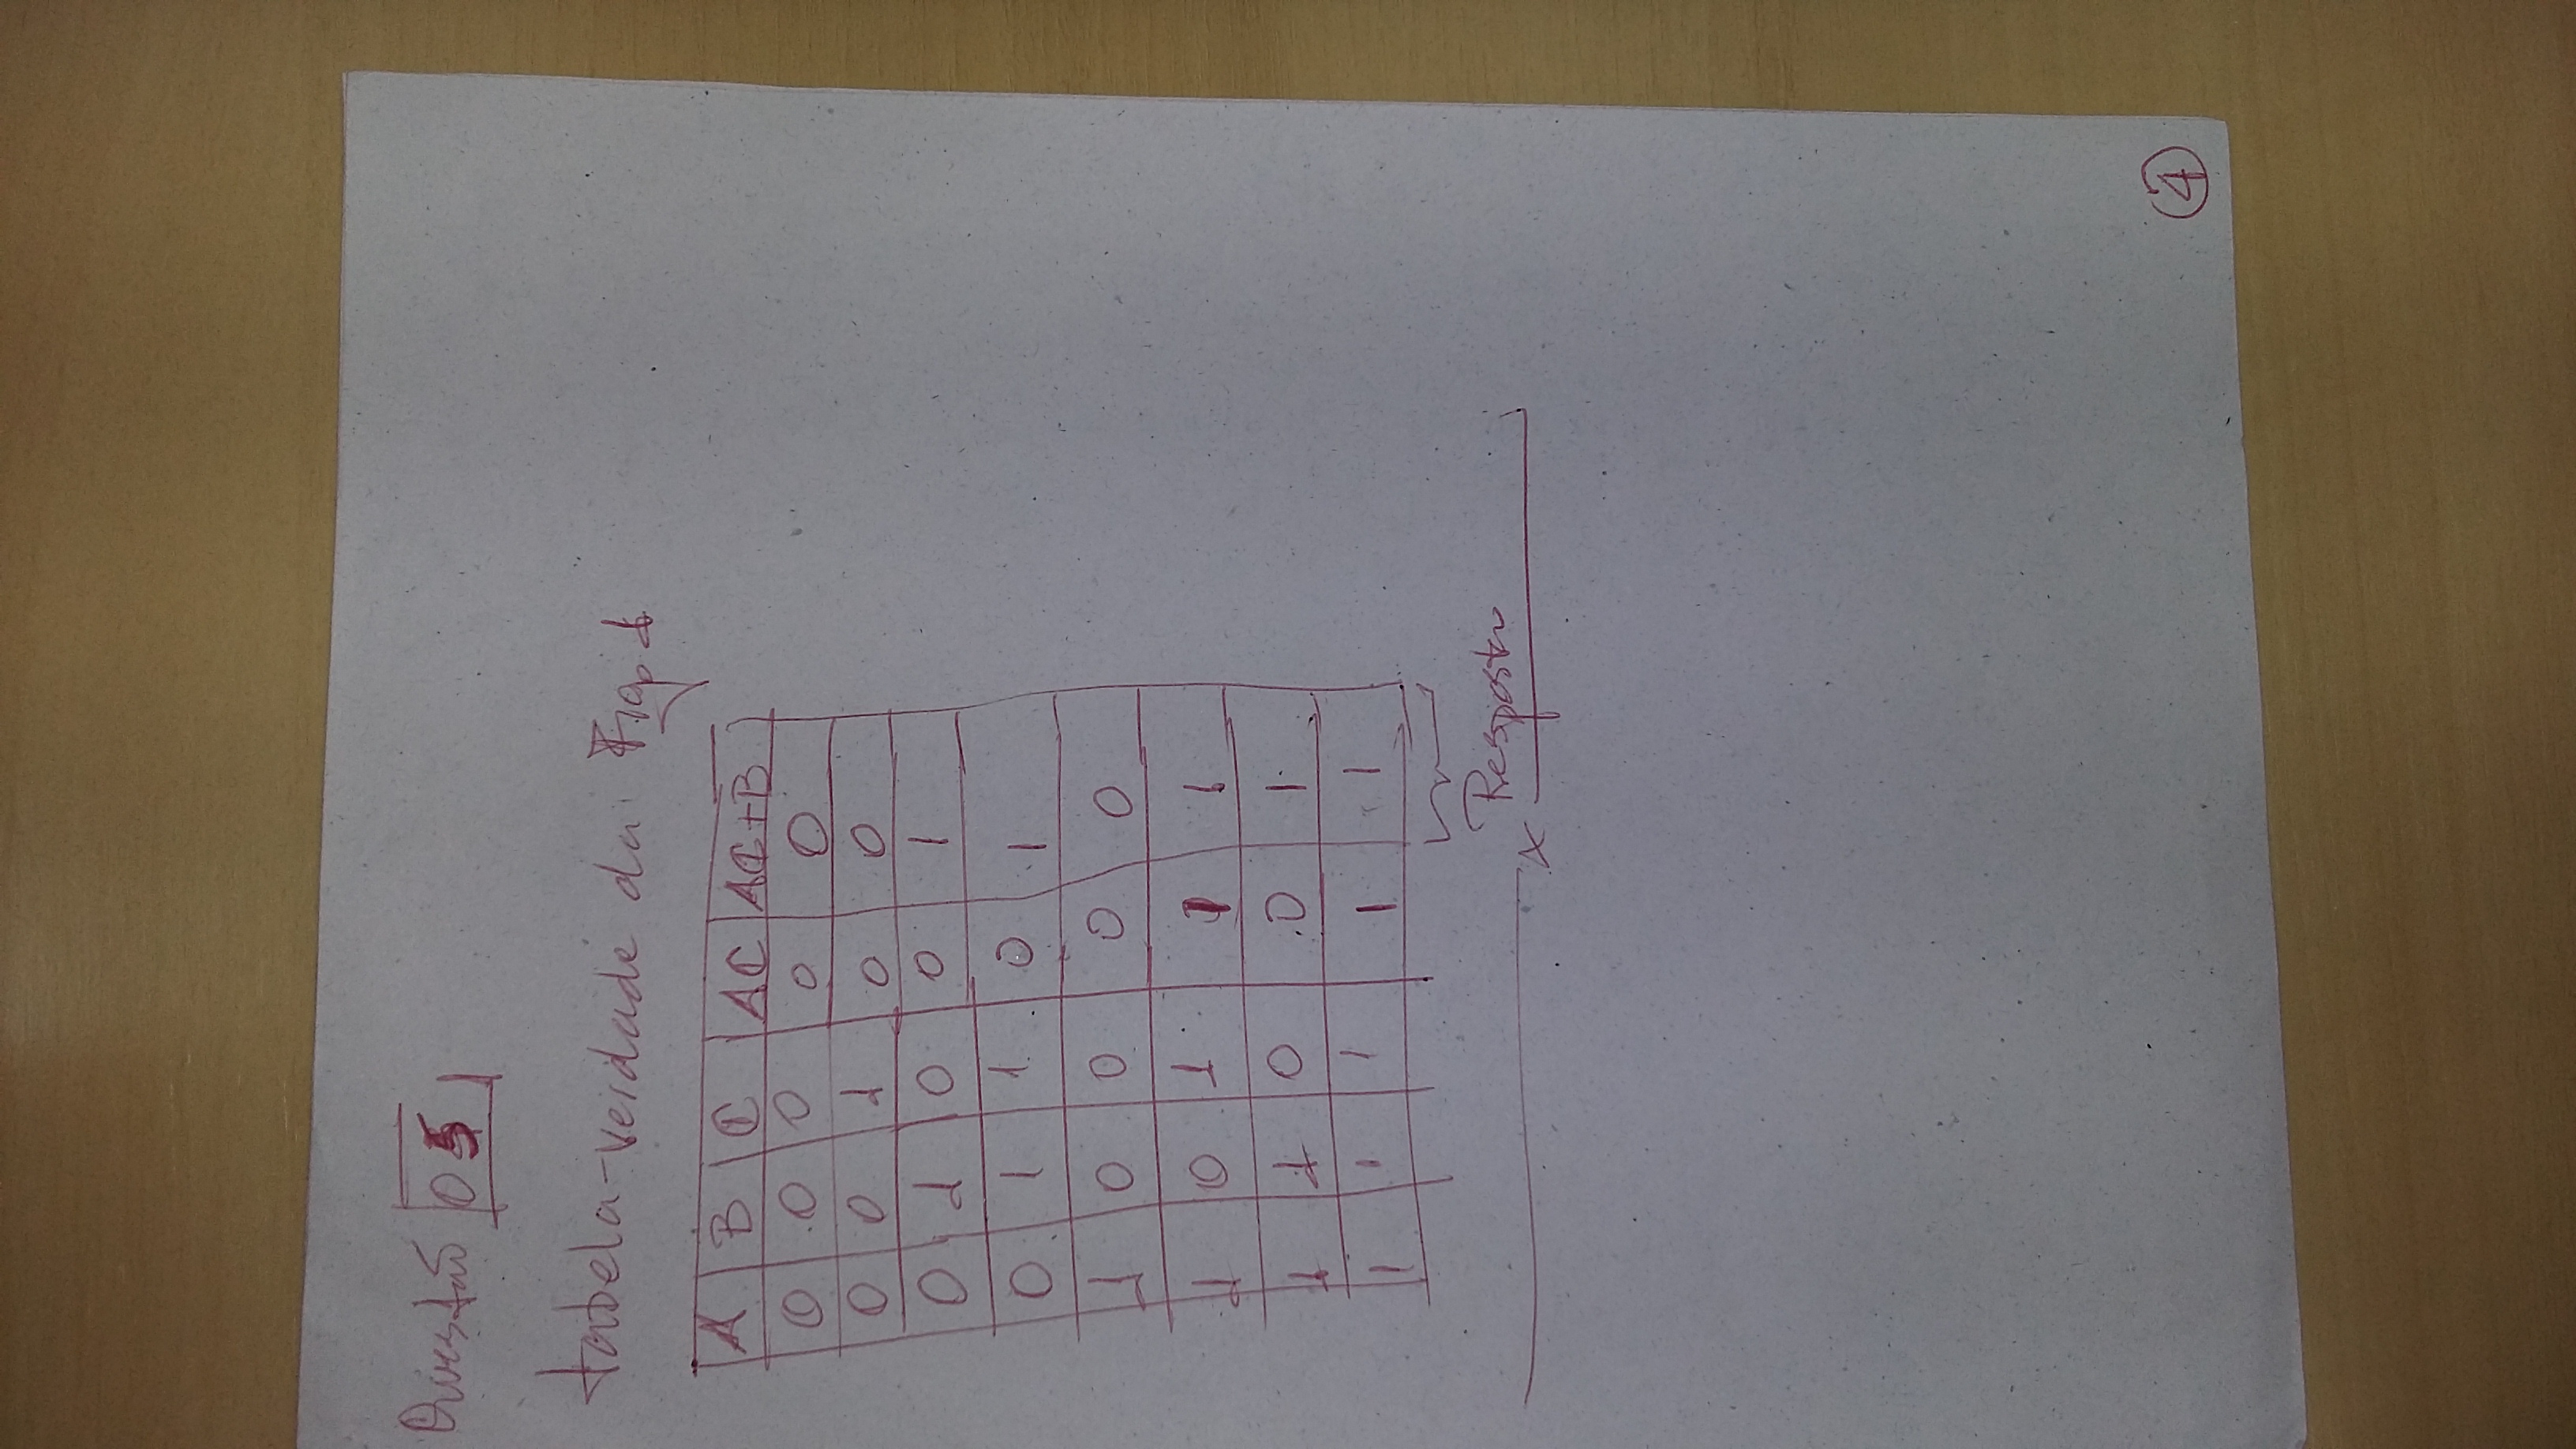 Questão 05
tabela-verdade da Fig 1
A B C AC AC+B
0 0 0 0 0
0 0 1 0 0
0 1 0 0 1
0 1 1 0 1
1 0 0 0 0
1 0 1 1 1
1 1 0 0 1
1 1 1 1 1
Resposta
x
4